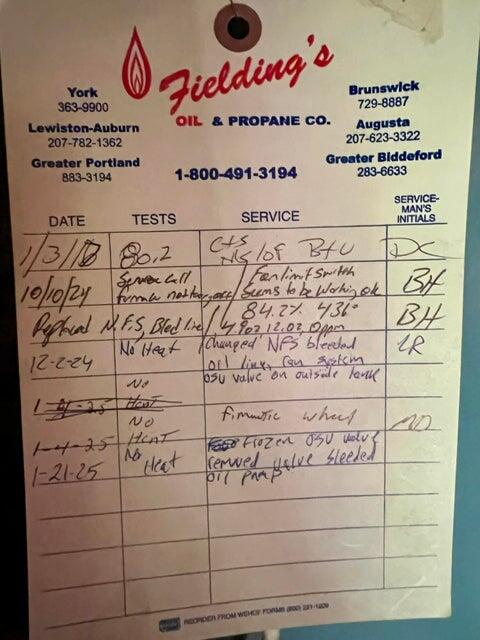 Fielding's
OIL & PROPANE CO.
York
363-9900
Lewiston-Auburn
207-782-1362
Greater Portland
883-3194
1-800-491-3194
Brunswick
729-8887
Augusta
207-623-3322
Greater Biddeford
283-6633
DATE TESTS SERVICE SERVICE-MAN'S INITIALS
80.2 DC
10/10/24 Service Call Fan limit switch BH
furnace not Seems to be working ok
Replaced N.F.S, Bled line 84.2% 436° BH
0ppm
12-2-24 No Heat Changed NFS bleeded LR
oil line, ran system
OSU valve on outside tank
No
Heat
No wheel
Heat Frozen OSU valve
1-21-25 No Heat removed valve bleeded
oil pump
REORDER FROM WEHOF FORMS (800) 221-1209